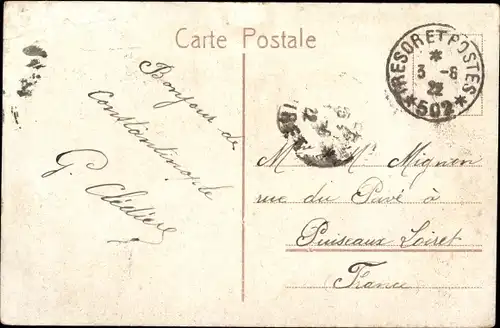 Carte Postale
TRESOR ET POSTES
*
3 - 6
22
* 502 *
Bonjour de
Constantinople
G.
Mr Mme Mignon
rue du Pavé à
Puiseaux Loiret
France